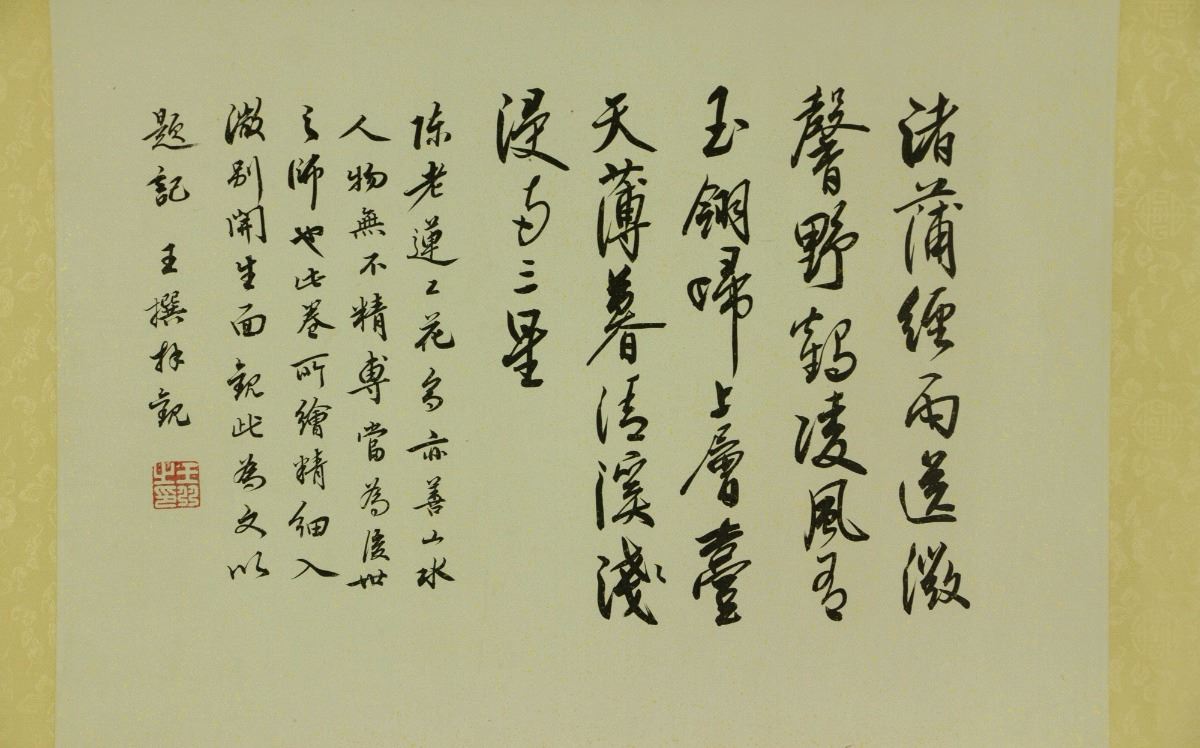 渚蒲經雨送微
馨野鶴凌風
玉翎歸上層臺
天薄暮清溪淺
浸兩三星
陳老蓮工花鳥亦善山水
人物無不精專當為後世
之師也此卷所繪精細入
微別開生面觀此為文以
題記 王撰拜觀